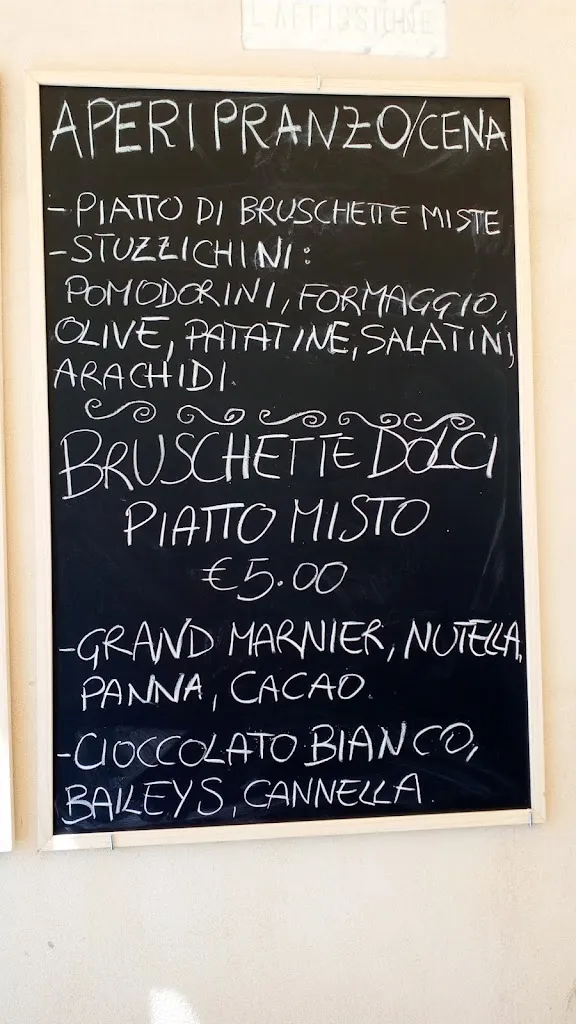 L'AFFISSIONE
APERIPRANZO/CENA
-PIATTO DI BRUSCHETTE MISTE
-STUZZICHINI:
POMODORINI, FORMAGGIO,
OLIVE, PATATINE, SALATINI,
ARACHIDI.
BRUSCHETTE DOLCI
PIATTO MISTO
€5.00
-GRAND MARNIER, NUTELLA,
PANNA, CACAO.
-CIOCCOLATO BIANCO,
BAILEYS, CANNELLA.